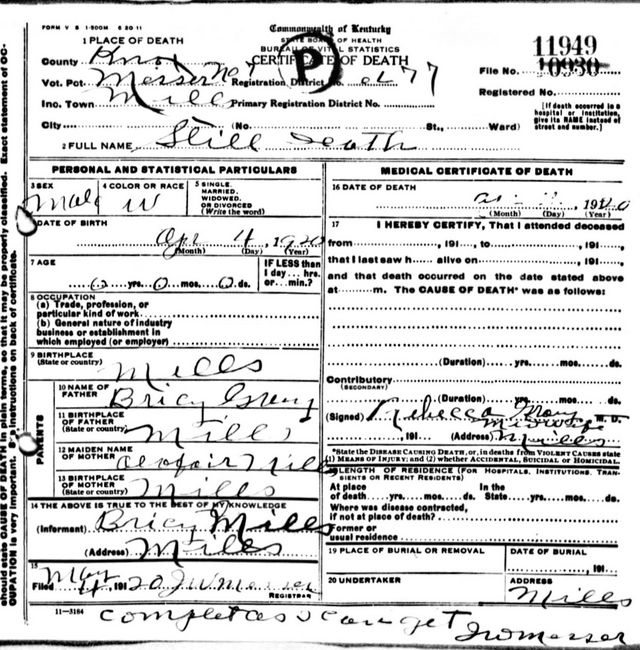 FORM V S 1-500M 6 20 11
Commonwealth of Kentucky
STATE BOARD OF HEALTH
BUREAU OF VITAL STATISTICS
CERTIFICATE OF DEATH
P
1 PLACE OF DEATH
County Knox
Vot. Pct Messer No 7 Registration District No. 77
Inc. Town Mills Primary Registration District No.
City (No. St., Ward)
11949
File No. 10930
Registered No.
[If death occurred in a hospital or institution, give its NAME instead of street and number.]
2 FULL NAME Still Death
PERSONAL AND STATISTICAL PARTICULARS
3 SEX male
4 COLOR OR RACE W
5 SINGLE, MARRIED, WIDOWED, OR DIVORCED (Write the word)
6 DATE OF BIRTH
Apr 4, 1920
(Month) (Day) (Year)
7 AGE
0 yrs. 0 mos. 0 ds.
IF LESS than 1 day... hrs. or... min.?
8 OCCUPATION
(a) Trade, profession, or
particular kind of work
(b) General nature of industry
business or establishment in
which employed (or employer)
9 BIRTHPLACE
(State or country) Mills
PARENTS
10 NAME OF
FATHER Bricy Gray
11 BIRTHPLACE
OF FATHER
(State or country) Mills
12 MAIDEN NAME
OF MOTHER Mills
13 BIRTHPLACE
OF MOTHER
(State or country) Mills
14 THE ABOVE IS TRUE TO THE BEST OF MY KNOWLEDGE
(Informant) Bricy Mills
(Address) Mills
15
Filed 4, 1920 J W Messer
REGISTRAR
11-3184
MEDICAL CERTIFICATE OF DEATH
16 DATE OF DEATH
, 1920
(Month) (Day) (Year)
17 I HEREBY CERTIFY, That I attended deceased
from , 191 , to , 191 ,
that I last saw h alive on , 191 ,
and that death occurred on the date stated above
at m. The CAUSE OF DEATH* was as follows:
(Duration) yrs. mos. ds.
Contributory
(SECONDARY)
(Duration) yrs. mos. ds.
(Signed) Rebecca Gray M. D.
Midwife
, 191 (Address) Mills
*State the DISEASE CAUSING DEATH, or, in deaths from VIOLENT CAUSES state
(1) MEANS OF INJURY; and (2) whether ACCIDENTAL, SUICIDAL or HOMICIDAL.
18 LENGTH OF RESIDENCE (FOR HOSPITALS, INSTITUTIONS, TRANSIENTS OR RECENT RESIDENTS)
At place In the
of death yrs. mos. ds. State yrs. mos. ds.
Where was disease contracted,
if not at place of death?
Former or
usual residence
19 PLACE OF BURIAL OR REMOVAL
DATE OF BURIAL
, 191
20 UNDERTAKER
ADDRESS
Mills
complet as I can get
J W Messer
should state CAUSE OF DEATH in plain terms, so that it may be properly classified. Exact statement of OC-
CUPATION is very important. See instructions on back of certificate.